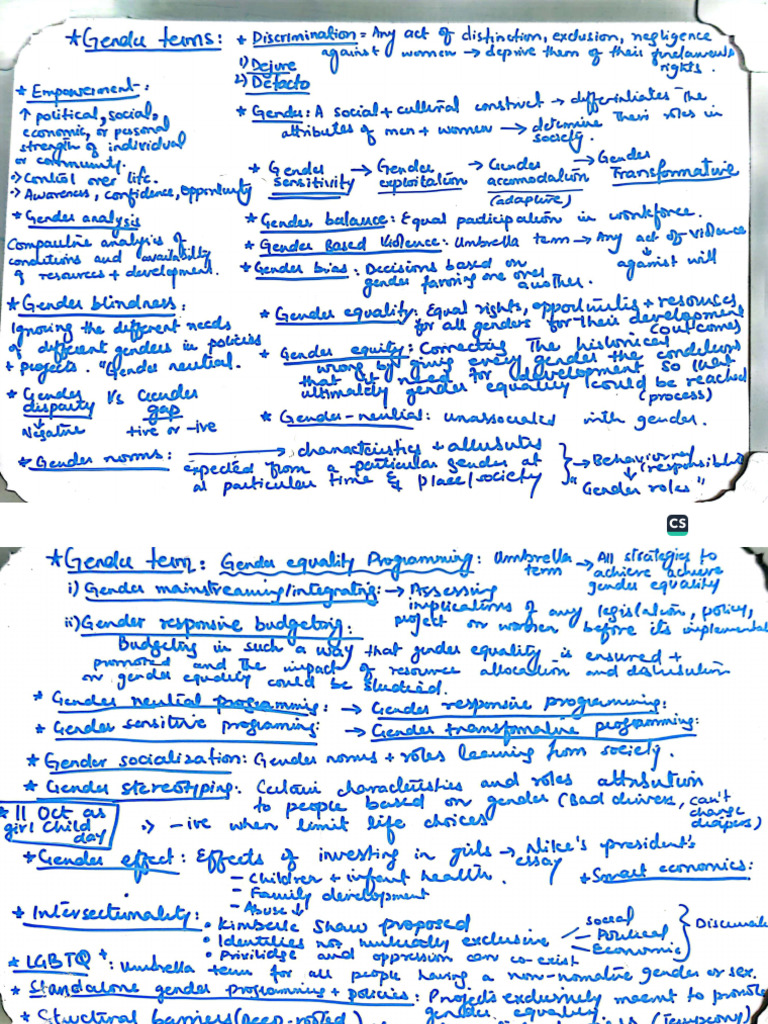 * Gender terms:
* Discrimination = Any act of distinction, exclusion, negligence
against women → deprive them of their fundamental
rights.
1) Dejure
2) Defacto
* Empowerment:
↑ political, social,
economic, or personal
strength of individual
or community.
→ Control over life.
→ Awareness, confidence, opportunity
* Gender: A social + cultural construct → differentiates the
attributes of men + women → determine their roles in
society.
* Gender sensitivity → Gender exploitation → Gender accomodation (adaptive) → Gender Transformative
* Gender analysis
Comparitive analysis of
conditions and availability
of resources + development.
* Gender balance: Equal participation in workforce.
* Gender Based Violence: Umbrella term → Any act of violence
against will
* Gender bias: Decisions based on
gender favoring one over
another.
* Gender blindness:
Ignoring the different needs
of different genders in policies
+ projects. "Gender neutral.
* Gender equality: Equal rights, opportunities + resources
for all genders for their development
(outcomes)
* Gender equity: Correcting the historical
wrong by giving every gender the conditions
that it need for development so that
ultimately gender equality could be reached
(process)
* Gender disparity Vs Gender gap
Negative +ive or -ive
* Gender-neutral: unassociated with gender.
* Gender norms: → characteristics + attributes
expected from a particular gender at
a particular time & place/society
→ Behaviour
(responsible)
"Gender roles"
CS
* Gender term: Gender equality Programming: Umbrella term → All strategies to
achieve achieve
gender equality
i) Gender mainstreaming/integrating: → Assessing
implications of any legislation, policy,
project on women before its implementat
ii) Gender responsive budgeting:
Budgeting in such a way that gender equality is ensured +
promoted and the impact of resource allocation and distribution
on gender equality could be studied.
* Gender neutral programming: → Gender responsive programming:
* Gender sensitive programing: → Gender transformative programming:
* Gender socialization: Gender norms + roles learning from society.
* Gender stereotyping: Certain characteristics and roles attribution
to people based on gender (Bad drivers, can't
change
diapers)
* 11 Oct as
girl child
day
→ -ive when limit life choices
* Gender effect: Effects of investing in girls → Nike's president's
essay
- Children + infant health.
- Family development
- Abuse ↓
* Smart economics:
* Intersectionality:
• Kimberle Shaw proposed
• Identities not mutually exclusive
• Privilidge and oppression can co-exist
social
- Political
- Economic
Discriminat
* LGBTQ+: Umbrella term for all people having a non-normative gender or sex.
* Standalone gender programming + policies: Projects exclusively meant to promote
gender equality
* Structural barriers (Deep-rooted)